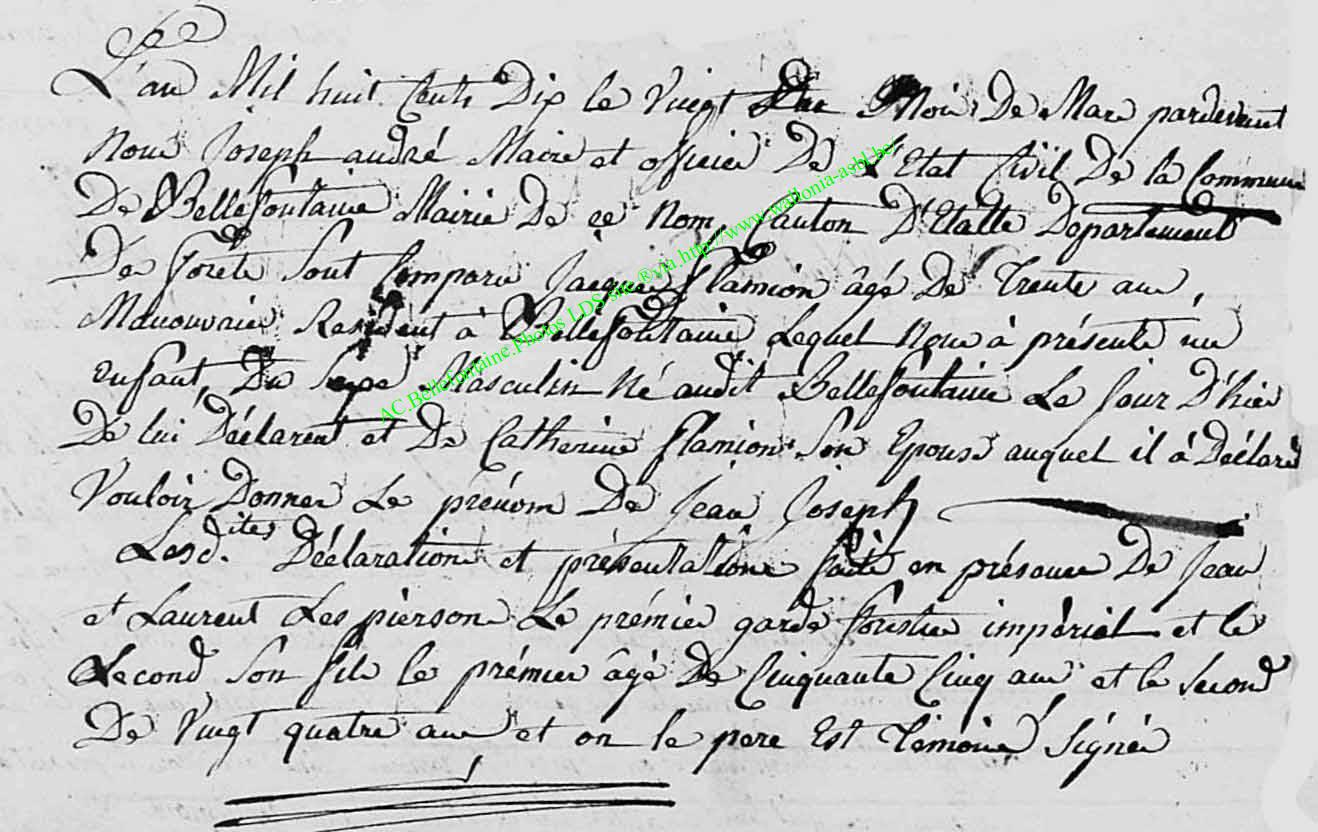 L'an Mil huit Cents Dix le Vingt Du Moi De Mar pardevant
Nous Joseph andré Maire et officier De L'Etat Civil De la Commune
De Bellefontaine Mairie De ce Nom, Canton D'Etalle Departement
De foréts Sont Comparu Jacque flamion âgé De Trente ans,
Manouvrier Resident à Bellefontaine Lequel Nous à présenté un
enfant, Du Sexe Masculin Né audit Bellefontaine Le Jour D'hier
De lui Déclarent et De Catherine flamion Son Epouse auquel il à Déclaré
Vouloir Donner Le prénom De Jean Joseph
Lesd.ites Déclaration et présentation faite en présence De Jean
et Laurent Les pierson Le prémier garde forestier impérial et le
Second Son fils le prémier âgé De Cinquante Cinq ans et le Second
De Vingt quatre ans et on le pere Est Témoins Signés
AC.Bellefontaine.Photos LDS site ®via.http://www.wallonia-asbl.be/